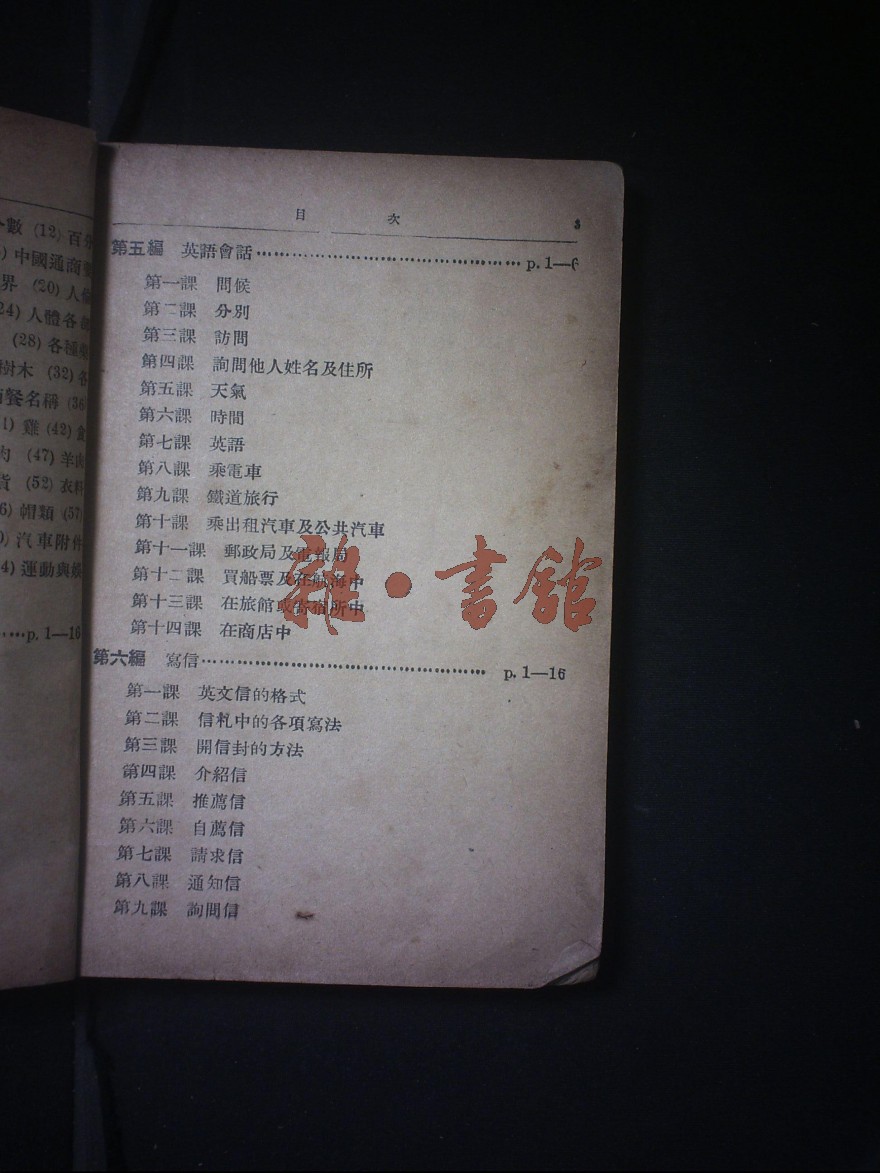 數 (12) 百分
中國通商要
界 (20) 人倫
24) 人體各部
(28) 各種
樹木 (32) 各
餐名稱 (36)
雞 (42) 食
肉 (47) 羊肉
貨 (52) 衣料
6) 帽類 (57)
汽車附件
4) 運動與娛
……p. 1—16
目 次 3
第五編 英語會話……………………………………p. 1—6
第一課 問候
第二課 分別
第三課 訪問
第四課 詢問他人姓名及住所
第五課 天氣
第六課 時間
第七課 英語
第八課 乘電車
第九課 鐵道旅行
第十課 乘出租汽車及公共汽車
第十一課 郵政局及電報局
第十二課 買船票及在航海中
第十三課 在旅館或寄宿所中
第十四課 在商店中
雜·書館
第六編 寫信……………………………………… p. 1—16
第一課 英文信的格式
第二課 信札中的各項寫法
第三課 開信封的方法
第四課 介紹信
第五課 推薦信
第六課 自薦信
第七課 請求信
第八課 通知信
第九課 詢問信